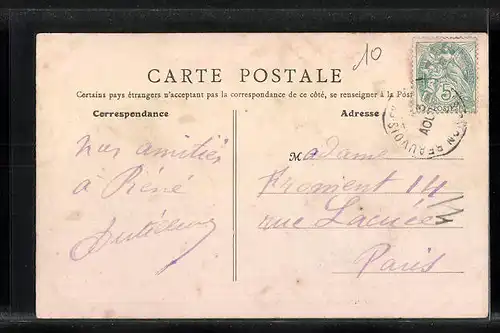 10
CARTE POSTALE
Certains pays étrangers n'acceptent pas la correspondance de ce côté, se renseigner à la Poste
Correspondance
Adresse
nos amitiés
à Réné
Madame
Froment 14
rue Lacuée
Paris
5
AOU
BEAUVOISIN